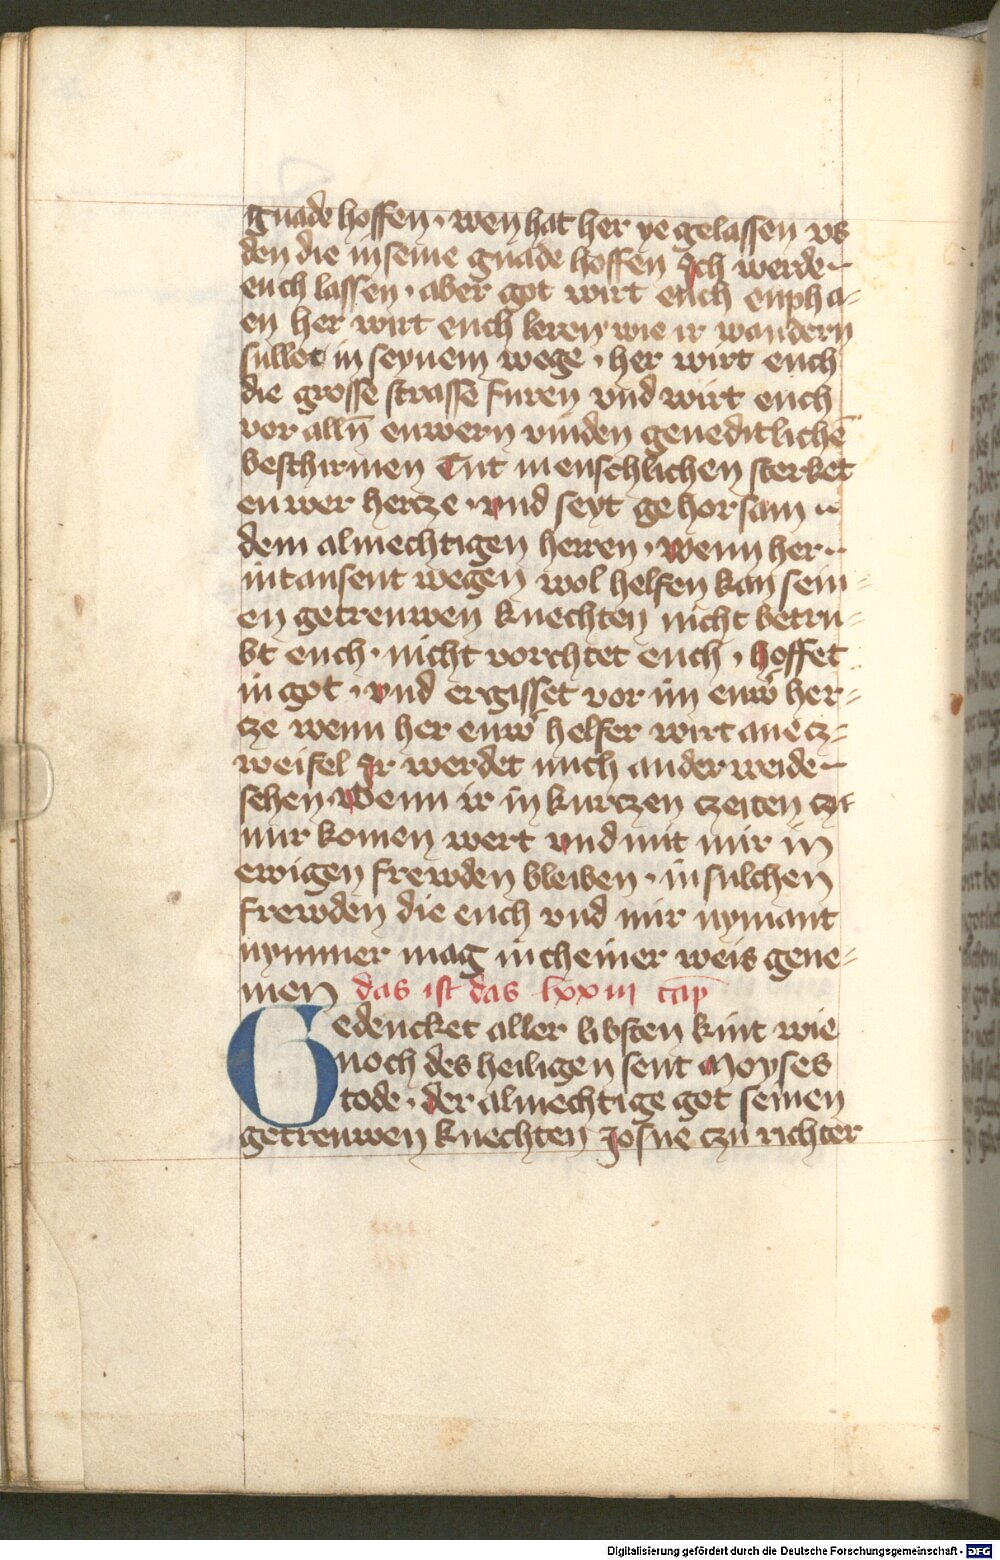 gnade hoffen · wen hat her ye gelassen vs
den die in seine gnade hoffen Ich werde
euch lassen · aber got wirt euch enpha-
en her wirt euch leren wie ir wandern
sullet in seynem wege · her wirt euch
die grosse strasse furen vnd wirt euch
vor alln̄ euwern vinden geneditlichē
beschirmen Tut menschlichen sterket
euwer hertze · vnd seyt gehorsam
dem almechtigen herren · wenn her
in tausent wegen wol helfen kan sein-
en getreuwen knechten nicht betru-
bt euch · nicht vorchtet euch · hoffet
in got · vnd ergisset vor im euw̓ her-
cze wenn her euw̓ helfer wirt ane cz-
weifel Ir werdet mich anderweide
sehen · Wenn ir in kurczen czeiten czu
mir komen wert vnd mit mir in
ewigen frewden bleiben · in sulchen
frewden die euch vnd mir nymant
nymmer mag in cheiner weis gene-
men das ist das lxxiii cap̄
Gedencket aller libsten kint wie
noch des heiligen sent Moyses
tode · der almechtige got seinen
getreuwen knechten Josue czu richter
Digitalisierung gefördert durch die Deutsche Forschungsgemeinschaft - DFG